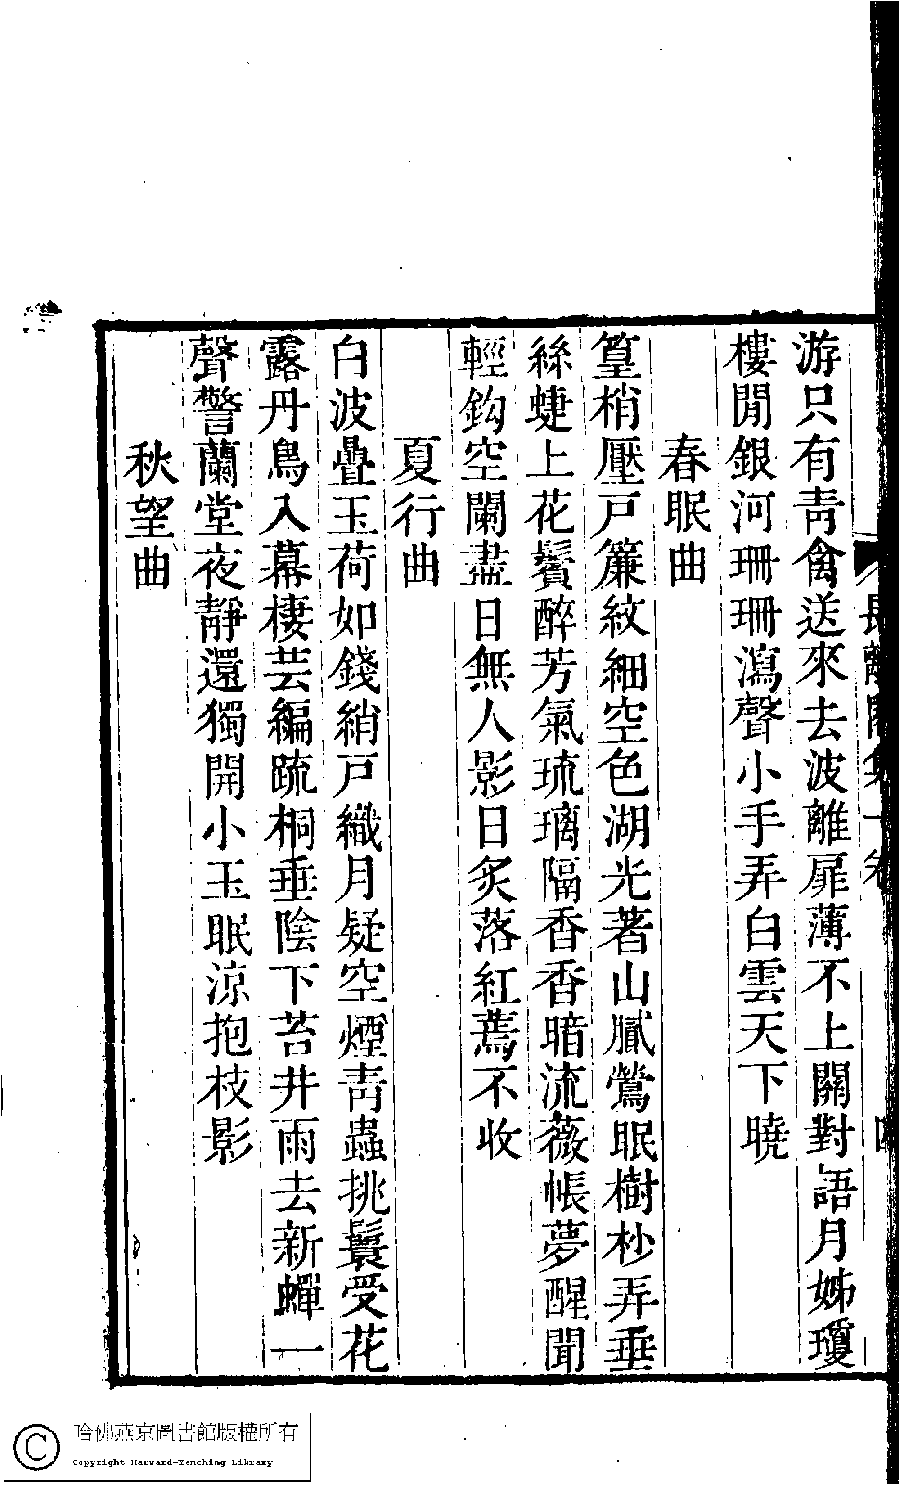 游只有靑禽送來去波離扉薄不上關對語月姊瓊
樓閒銀河珊珊瀉聲小手弄白雲天下曉
春眠曲
篁梢壓戸簾紋細空色湖光著山膩鶯眠樹杪弄垂
絲蜨上花鬢醉芳氣琉璃隔香香暗流薇帳夢醒聞
輕鈎空闌盡日無人影日炙落紅蔫不收
夏行曲
白波疊玉荷如錢綃戸織月疑空煙靑蟲挑鬟受花
露丹鳥入幕棲芸編疏桐垂陰下苔井雨去新蟬一
聲警蘭堂夜靜還獨開小玉眠涼抱枝影
秋望曲
長離閣集一卷
四
哈佛燕京圖書館版權所有
Copyright Harvard-Yenching Library